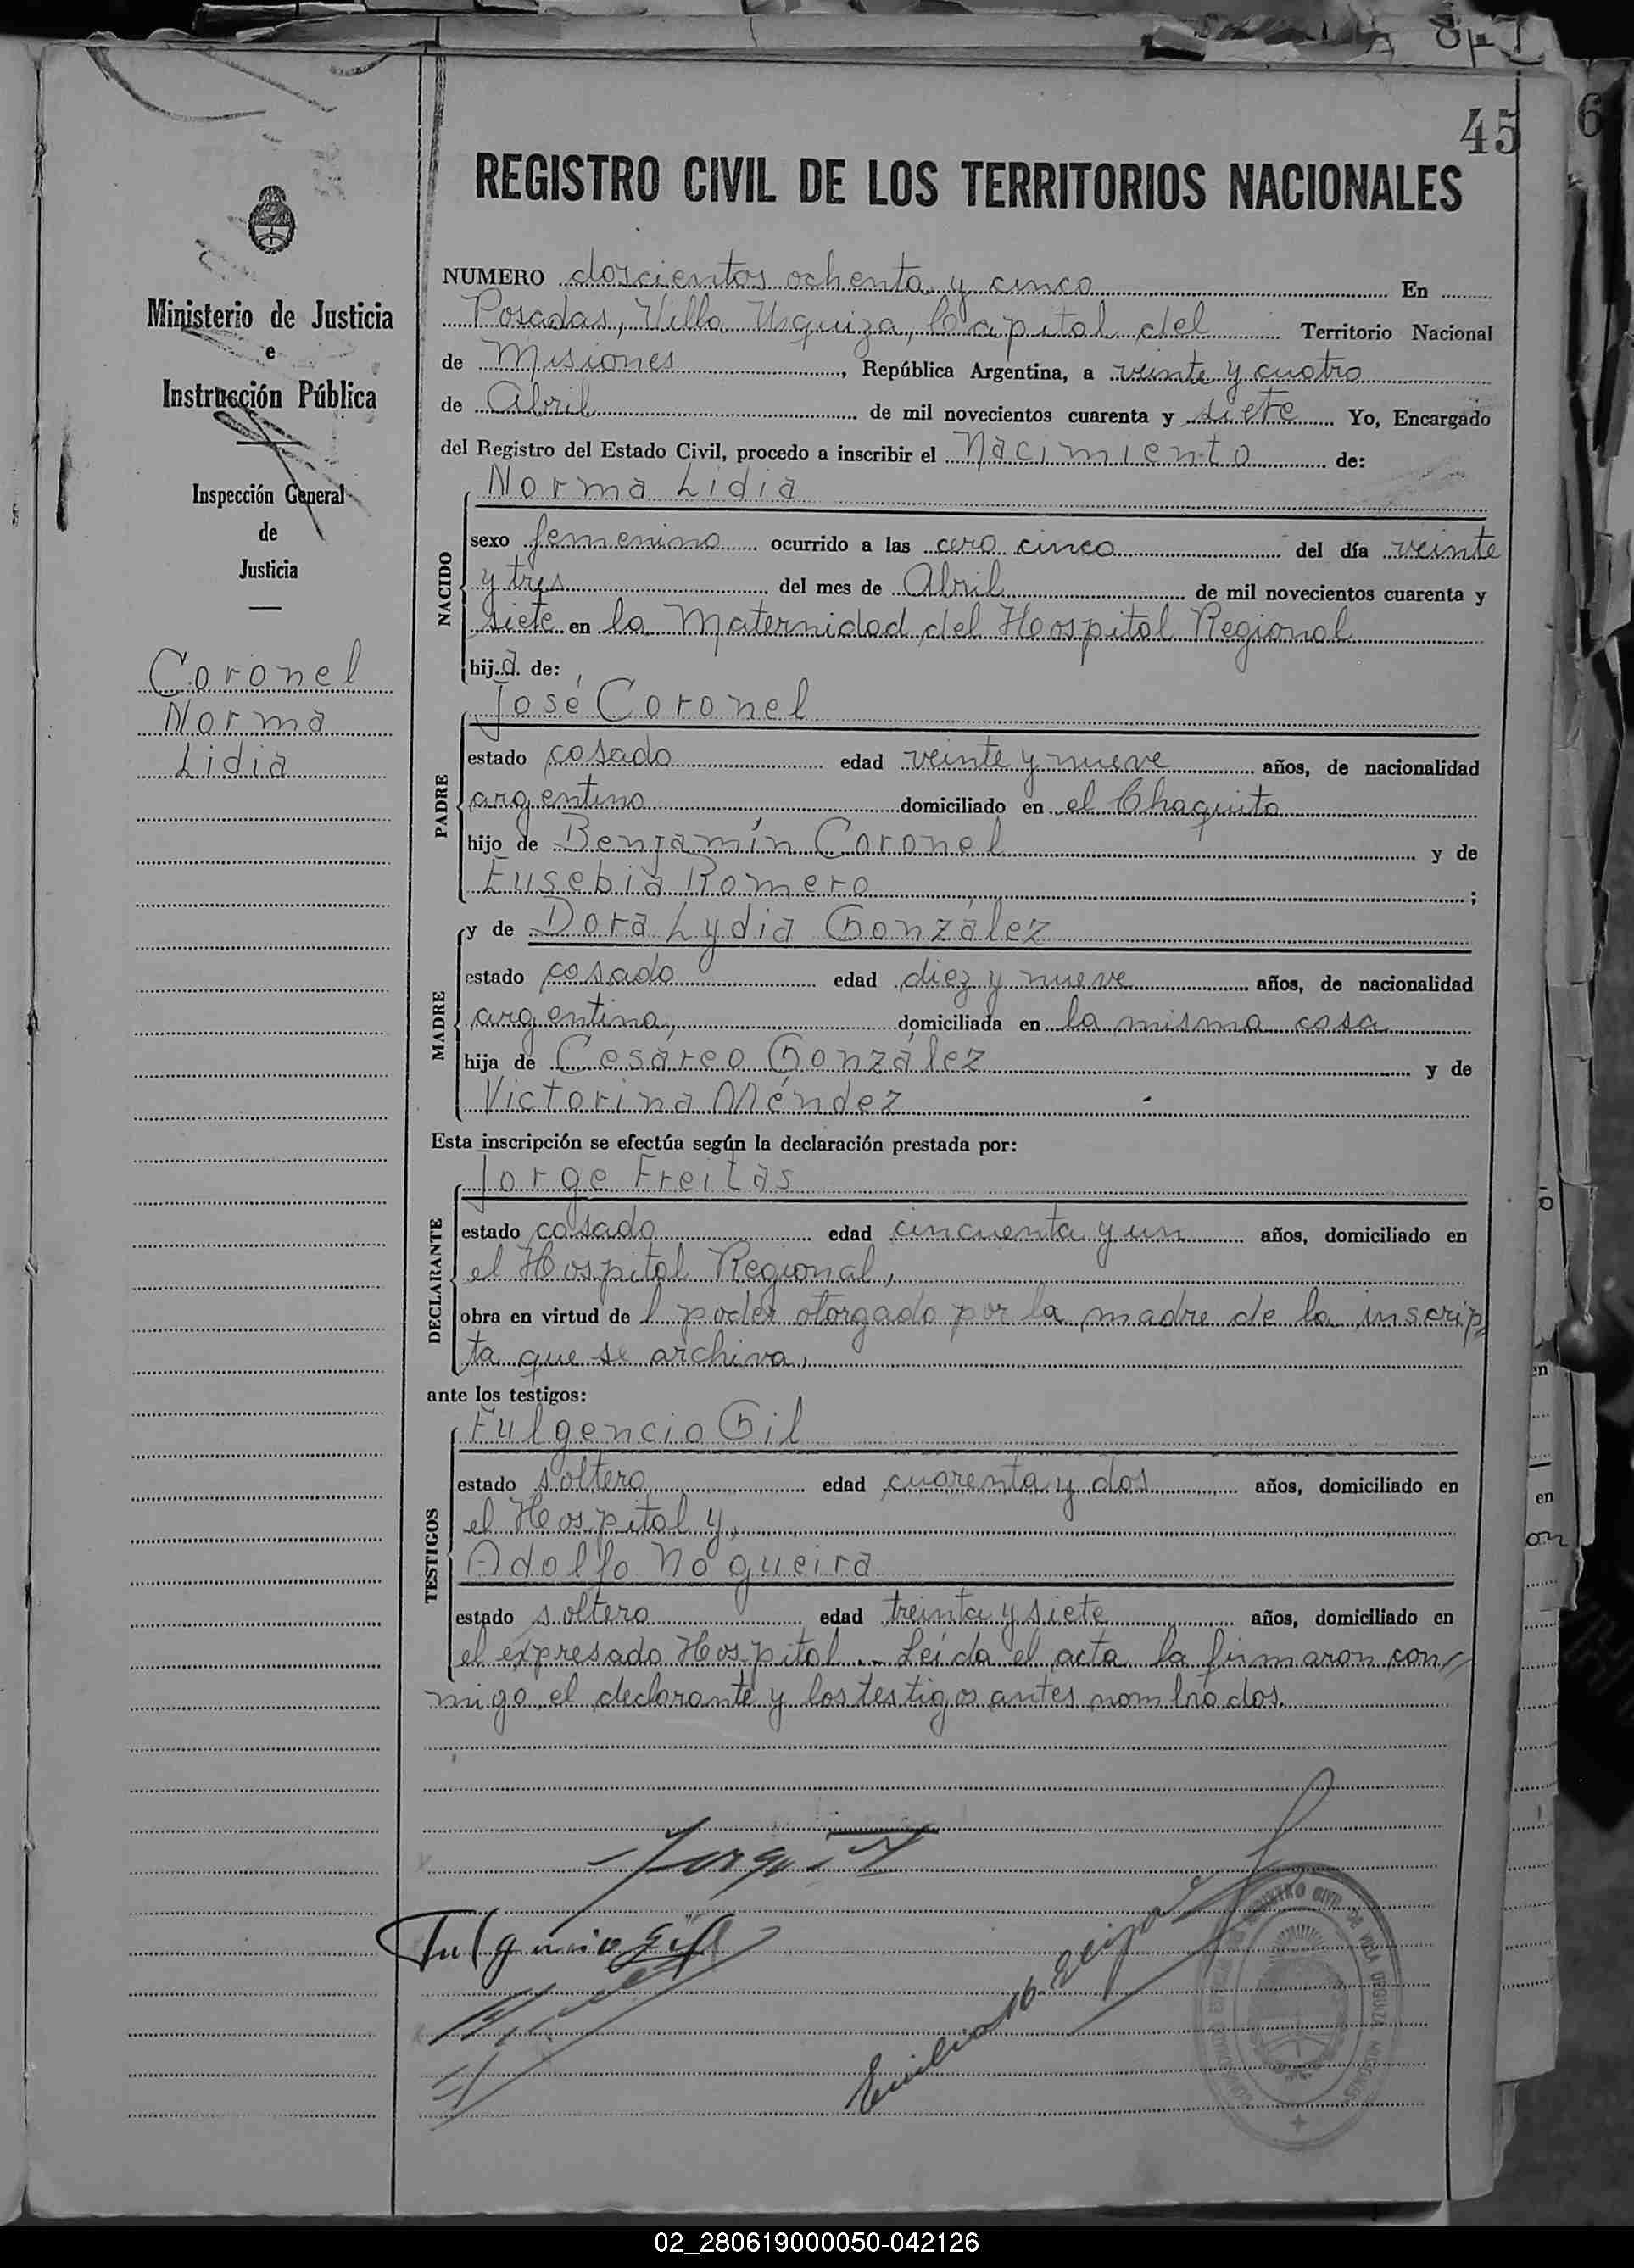 45
6
REGISTRO CIVIL DE LOS TERRITORIOS NACIONALES
Ministerio de Justicia
e
Instrucción Pública
Inspección General
de
Justicia
Coronel
Norma
Lidia
NUMERO doscientos ochenta y cinco En
Posadas, Villa Urquiza, Capital del Territorio Nacional
de Misiones, República Argentina, a veinte y cuatro
de Abril de mil novecientos cuarenta y siete Yo, Encargado
del Registro del Estado Civil, procedo a inscribir el Nacimiento de:
Norma Lidia
NACIDO
sexo femenino ocurrido a las cero cinco del día veinte
y tres del mes de Abril de mil novecientos cuarenta y
siete en la Maternidad del Hospital Regional
hij.a de:
José Coronel
PADRE
estado casado edad veinte y nueve años, de nacionalidad
argentino domiciliado en el Chaquito
hijo de Benjamín Coronel y de
Eusebia Romero ;
y de Dora Lydia González
MADRE
estado casado edad diez y nueve años, de nacionalidad
argentina, domiciliada en la misma casa
hija de Cesáreo González y de
Victorina Méndez
Esta inscripción se efectúa según la declaración prestada por:
Jorge Freitas
DECLARANTE
estado casado edad cincuenta y un años, domiciliado en
el Hospital Regional,
obra en virtud de l poder otorgado por la madre de la inscrip
ta que se archiva,
ante los testigos:
Fulgencio Gil
TESTIGOS
estado soltero edad cuarenta y dos años, domiciliado en
el Hospital y,
Adolfo Nogueira
estado soltero edad treinta y siete años, domiciliado en
el expresado Hospital.- Leída el acta la firmaron con//
migo el declarante y los testigos antes nombrados.
Fulgencio Gil
02_280619000050-042126